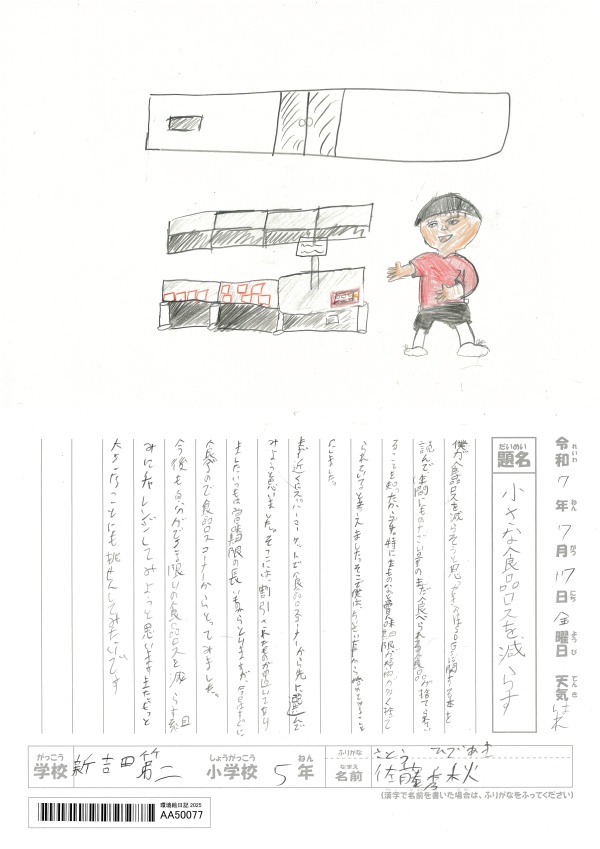 令和 7 年 7 月 17 日 金曜日 天気 はれ
れいわ ねん がつ にち ようび てんき
だいめい
題名
小さな食品ロスを減らす
僕が食品ロスを減らそうと思ったきっかけはSDGsに関する本を
読んで年間にものすごい量のまだ食べられる食品が捨てられてい
ることを知ったからです。特に生ものなど賞味期限が
られていると考えました。そこで僕は、
にしました。
まず近くにスーパーマーケットで食品ロスコーナーから先に選んで
みようと思いました。そこには、割引されたものが
ましたいつもは賞味期限の長い
食べるので食品ロスコーナーからとってみました。
今後も自分ができる限りの食品ロスを減らす取組
みにチャレンジしてみようと思いますまたもっと
大きなことにも挑せんしてみたいです
がっこう
学校
新吉田第二
しょうがっこう
小学校
5
ねん
年
ふりがな
さとう ひであき
なまえ
名前
佐藤秀秋
(漢字で名前を書いた場合は、ふりがなをふってください)
環境絵日記 2025
AA50077